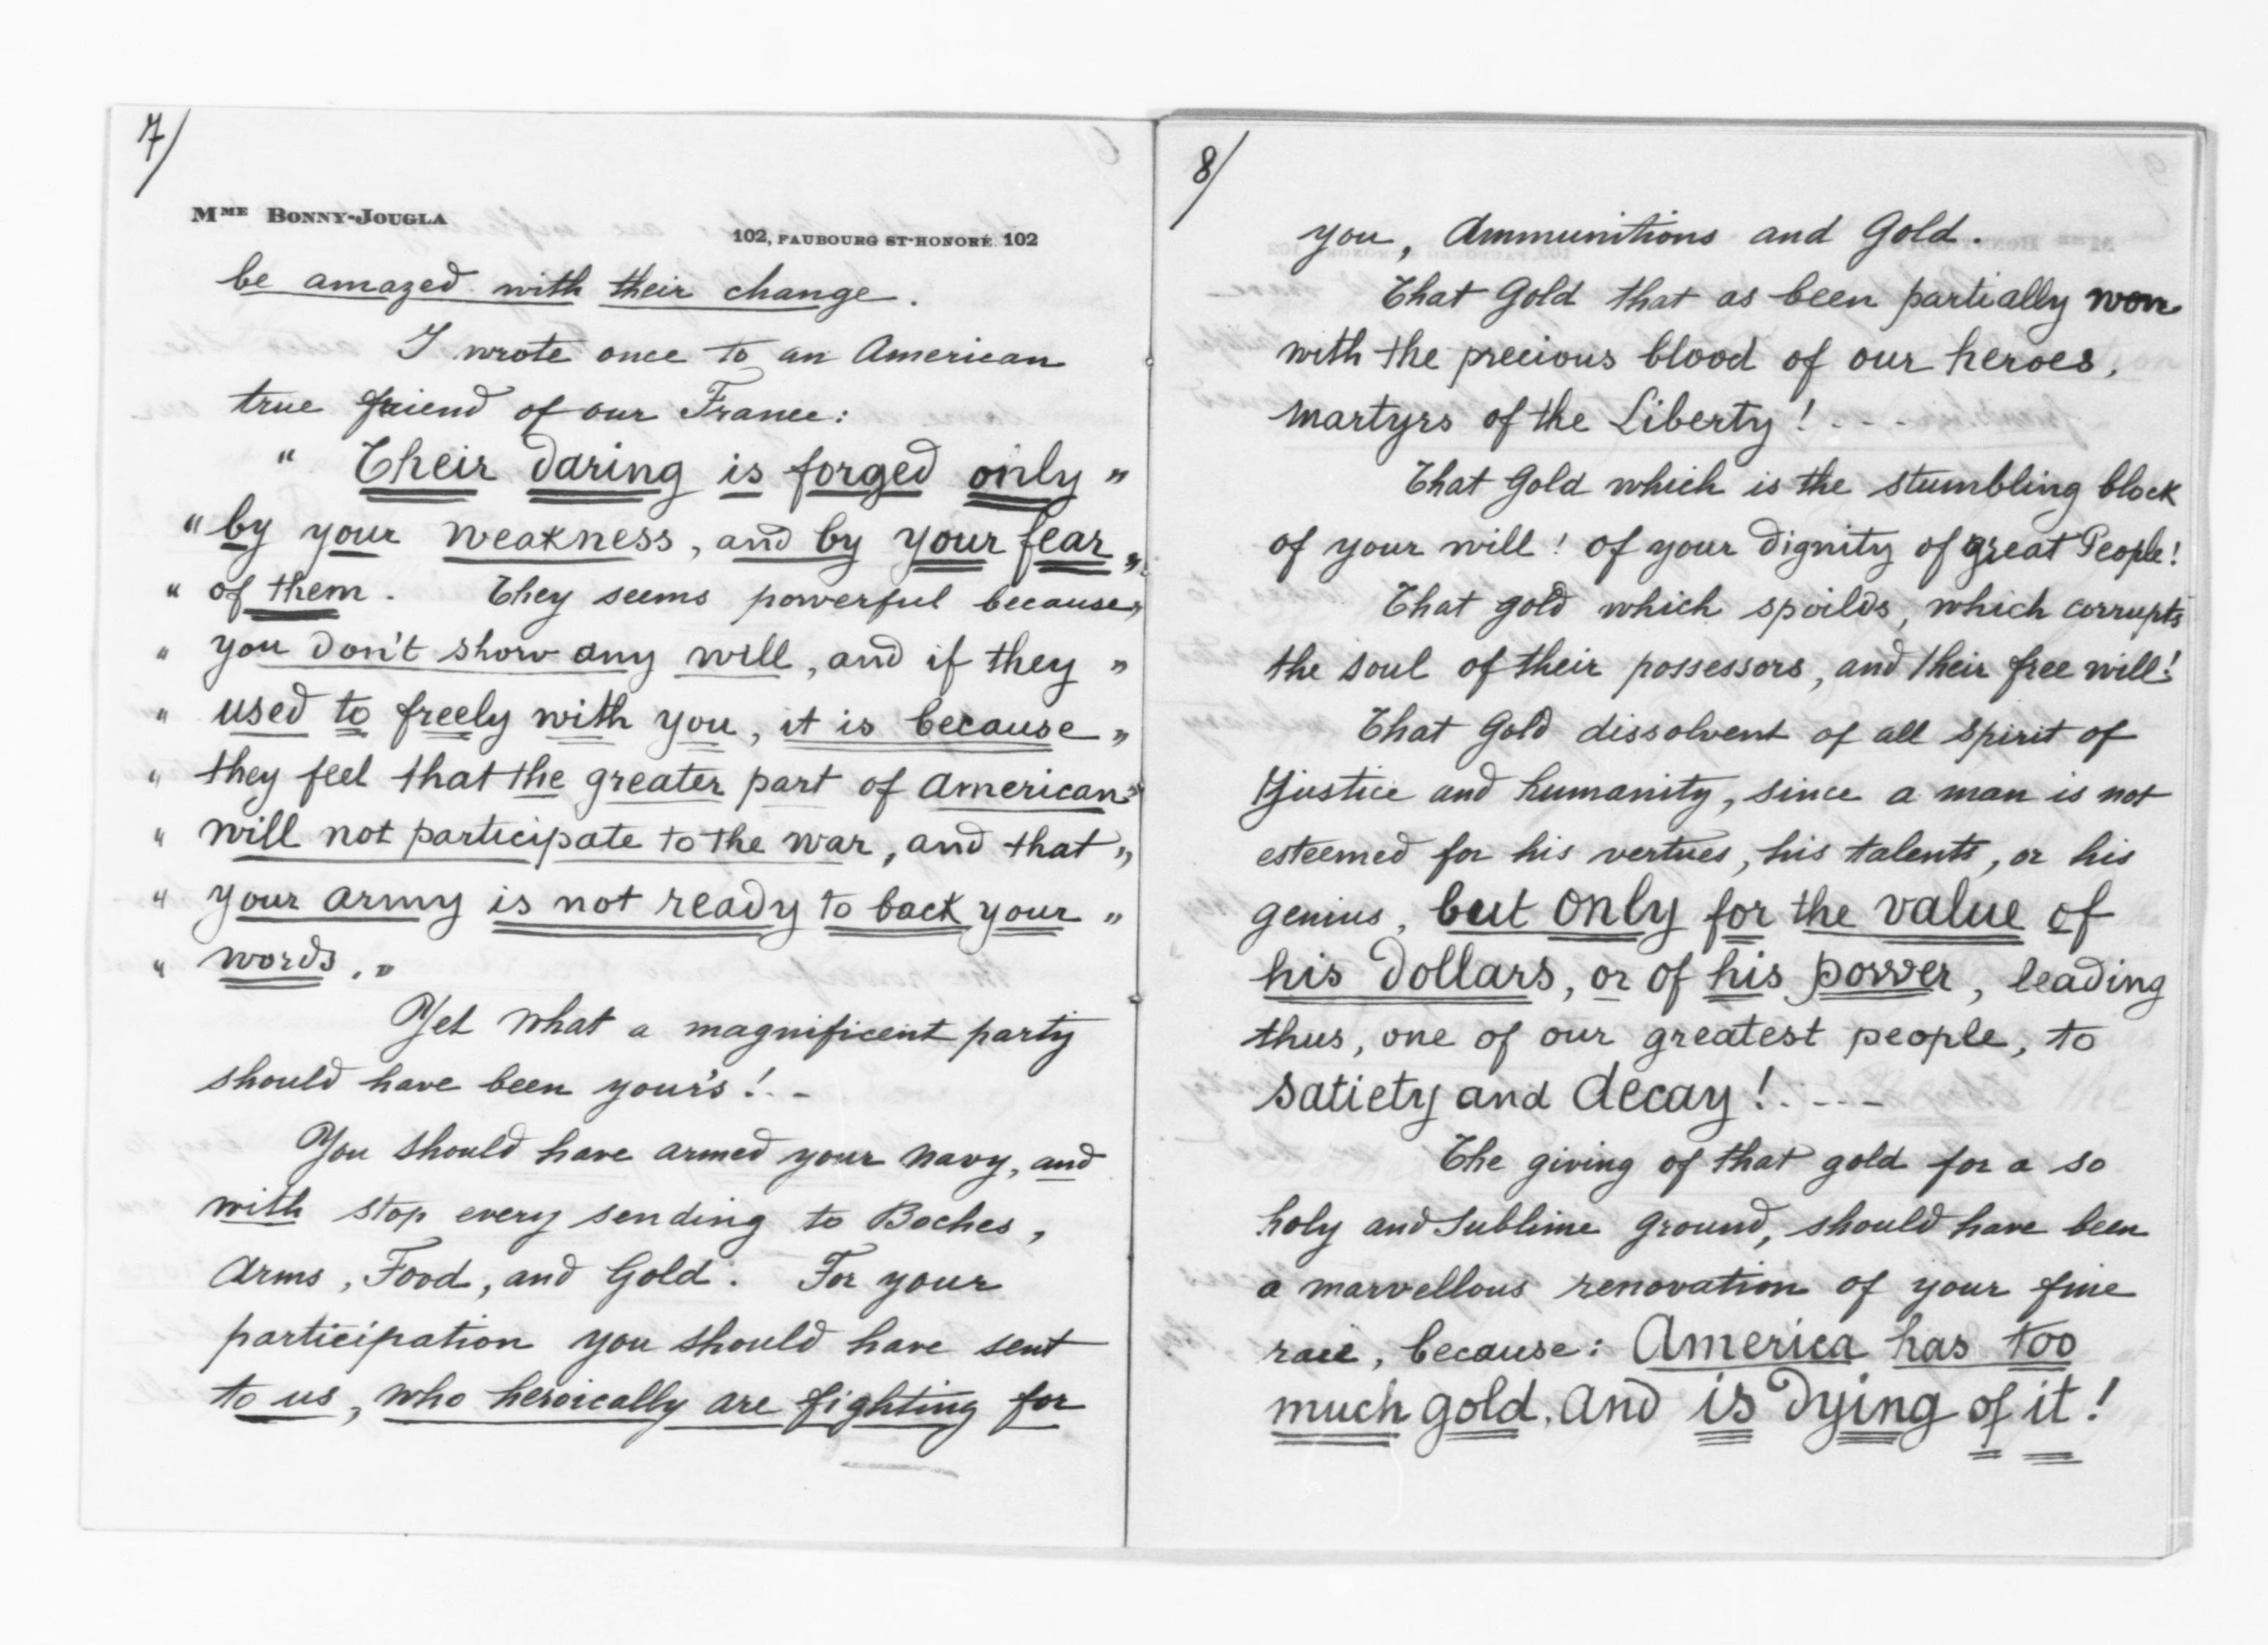 7/
Mme Bonny-Jougla
102, Faubourg St-Honoré, 102
be amazed with their change.
I wrote once to an American
true friend of our France:
" Their daring is forged only "
" by your weakness, and by your fear "
" of them. They seems powerful because "
" you don't show any will, and if they "
" used to freely with you, it is because "
" they feel that the greater part of American "
" will not participate to the war, and that "
" your army is not ready to back your "
" words. "
Yet what a magnificent party
should have been your's! . -
You should have armed your navy, and
with stop every sending to Boches,
Arms, Food, and Gold. For your
participation you should have sent
to us, who heroically are fighting for
8/
you, Ammunitions and Gold.
That Gold that as been partially won
with the precious blood of our heroes,
martyrs of the Liberty! - - -
That Gold which is the stumbling block
of your will! of your dignity of great People!
That gold which spoilds, which corrupts
the soul of their possessors, and their free will!
That Gold dissolvent of all spirit of
justice and humanity, since a man is not
esteemed for his vertues, his talents, or his
genius, but only for the value of
his dollars, or of his power, leading
thus, one of our greatest people, to
satiety and decay! . - - -
The giving of that gold for a so
holy and sublime ground, should have been
a marvellous renovation of your fine
race, because: America has too
much gold, and is dying of it!